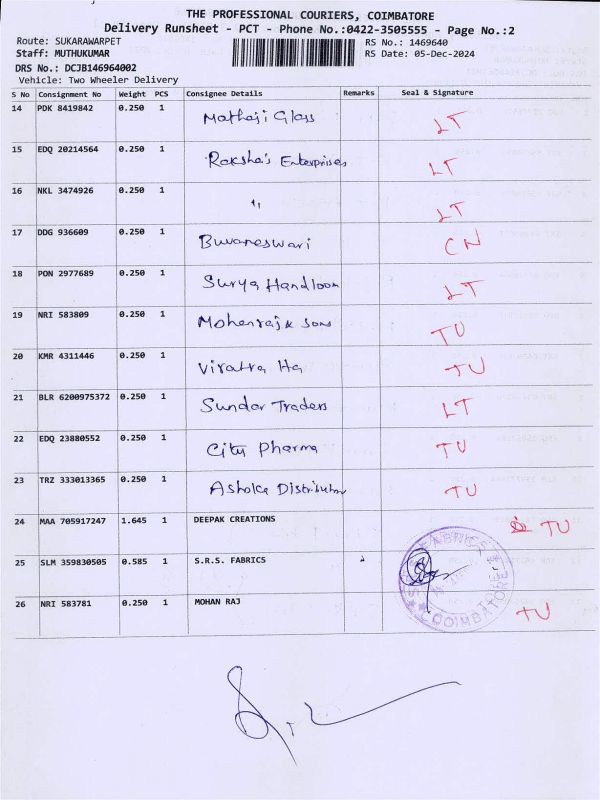 THE PROFESSIONAL COURIERS, COIMBATORE
Delivery Runsheet - PCT - Phone No.:0422-3505555 - Page No.:2
Route: SUKARAWARPET
RS No.: 1469640
Staff: MUTHUKUMAR
RS Date: 05-Dec-2024
DRS No.: DCJB146964002
Vehicle: Two Wheeler Delivery
S No Consignment No Weight PCS Consignee Details Remarks Seal & Signature
14 PDK 8419842 0.250 1 Mathaji Glass LT
15 EDQ 20214564 0.250 1 Raksha's Enterprises LT
16 NKL 3474926 0.250 1 " LT
17 DDG 936609 0.250 1 Buvaneswari CN
18 PON 2977689 0.250 1 Surya Handloom LT
19 NRI 583809 0.250 1 Mohanraj & Sons TU
20 KMR 4311446 0.250 1 TU
21 BLR 6200975372 0.250 1 Sundar Traders LT
22 EDQ 23880552 0.250 1 City Pharma TU
23 TRZ 333013365 0.250 1 Ashoka Distributor TU
24 MAA 705917247 1.645 1 DEEPAK CREATIONS TU
25 SLM 359830505 0.585 1 S.R.S. FABRICS FABRICS COIMBATORE
26 NRI 583781 0.250 1 MOHAN RAJ TU